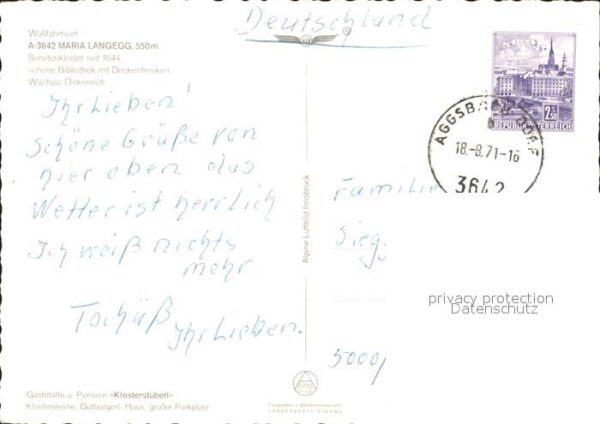 Deutschland
Wallfahrtsort
A-3642 MARIA LANGEGG, 550m
Servitenkloster seit 1644,
schöne Bibliothek mit Deckenfresken
Wachau, Österreich
Ihr Lieben!
Schöne Grüße von
hier oben das
Wetter ist herrlich
Ich weiß nichts
mehr
Tschüß
Ihr Lieben.
Gaststätte u. Pension »Klosterstüberl«
Klosterweine, Gutbürgerl. Haus, großer Parkplatz
Alpine Luftbild Innsbruck
REPUBLIK ÖSTERREICH
AGGSBACH DORF
18.-8.71-16
3642
Familie
Sieg.
5000
privacy protection
Datenschutz